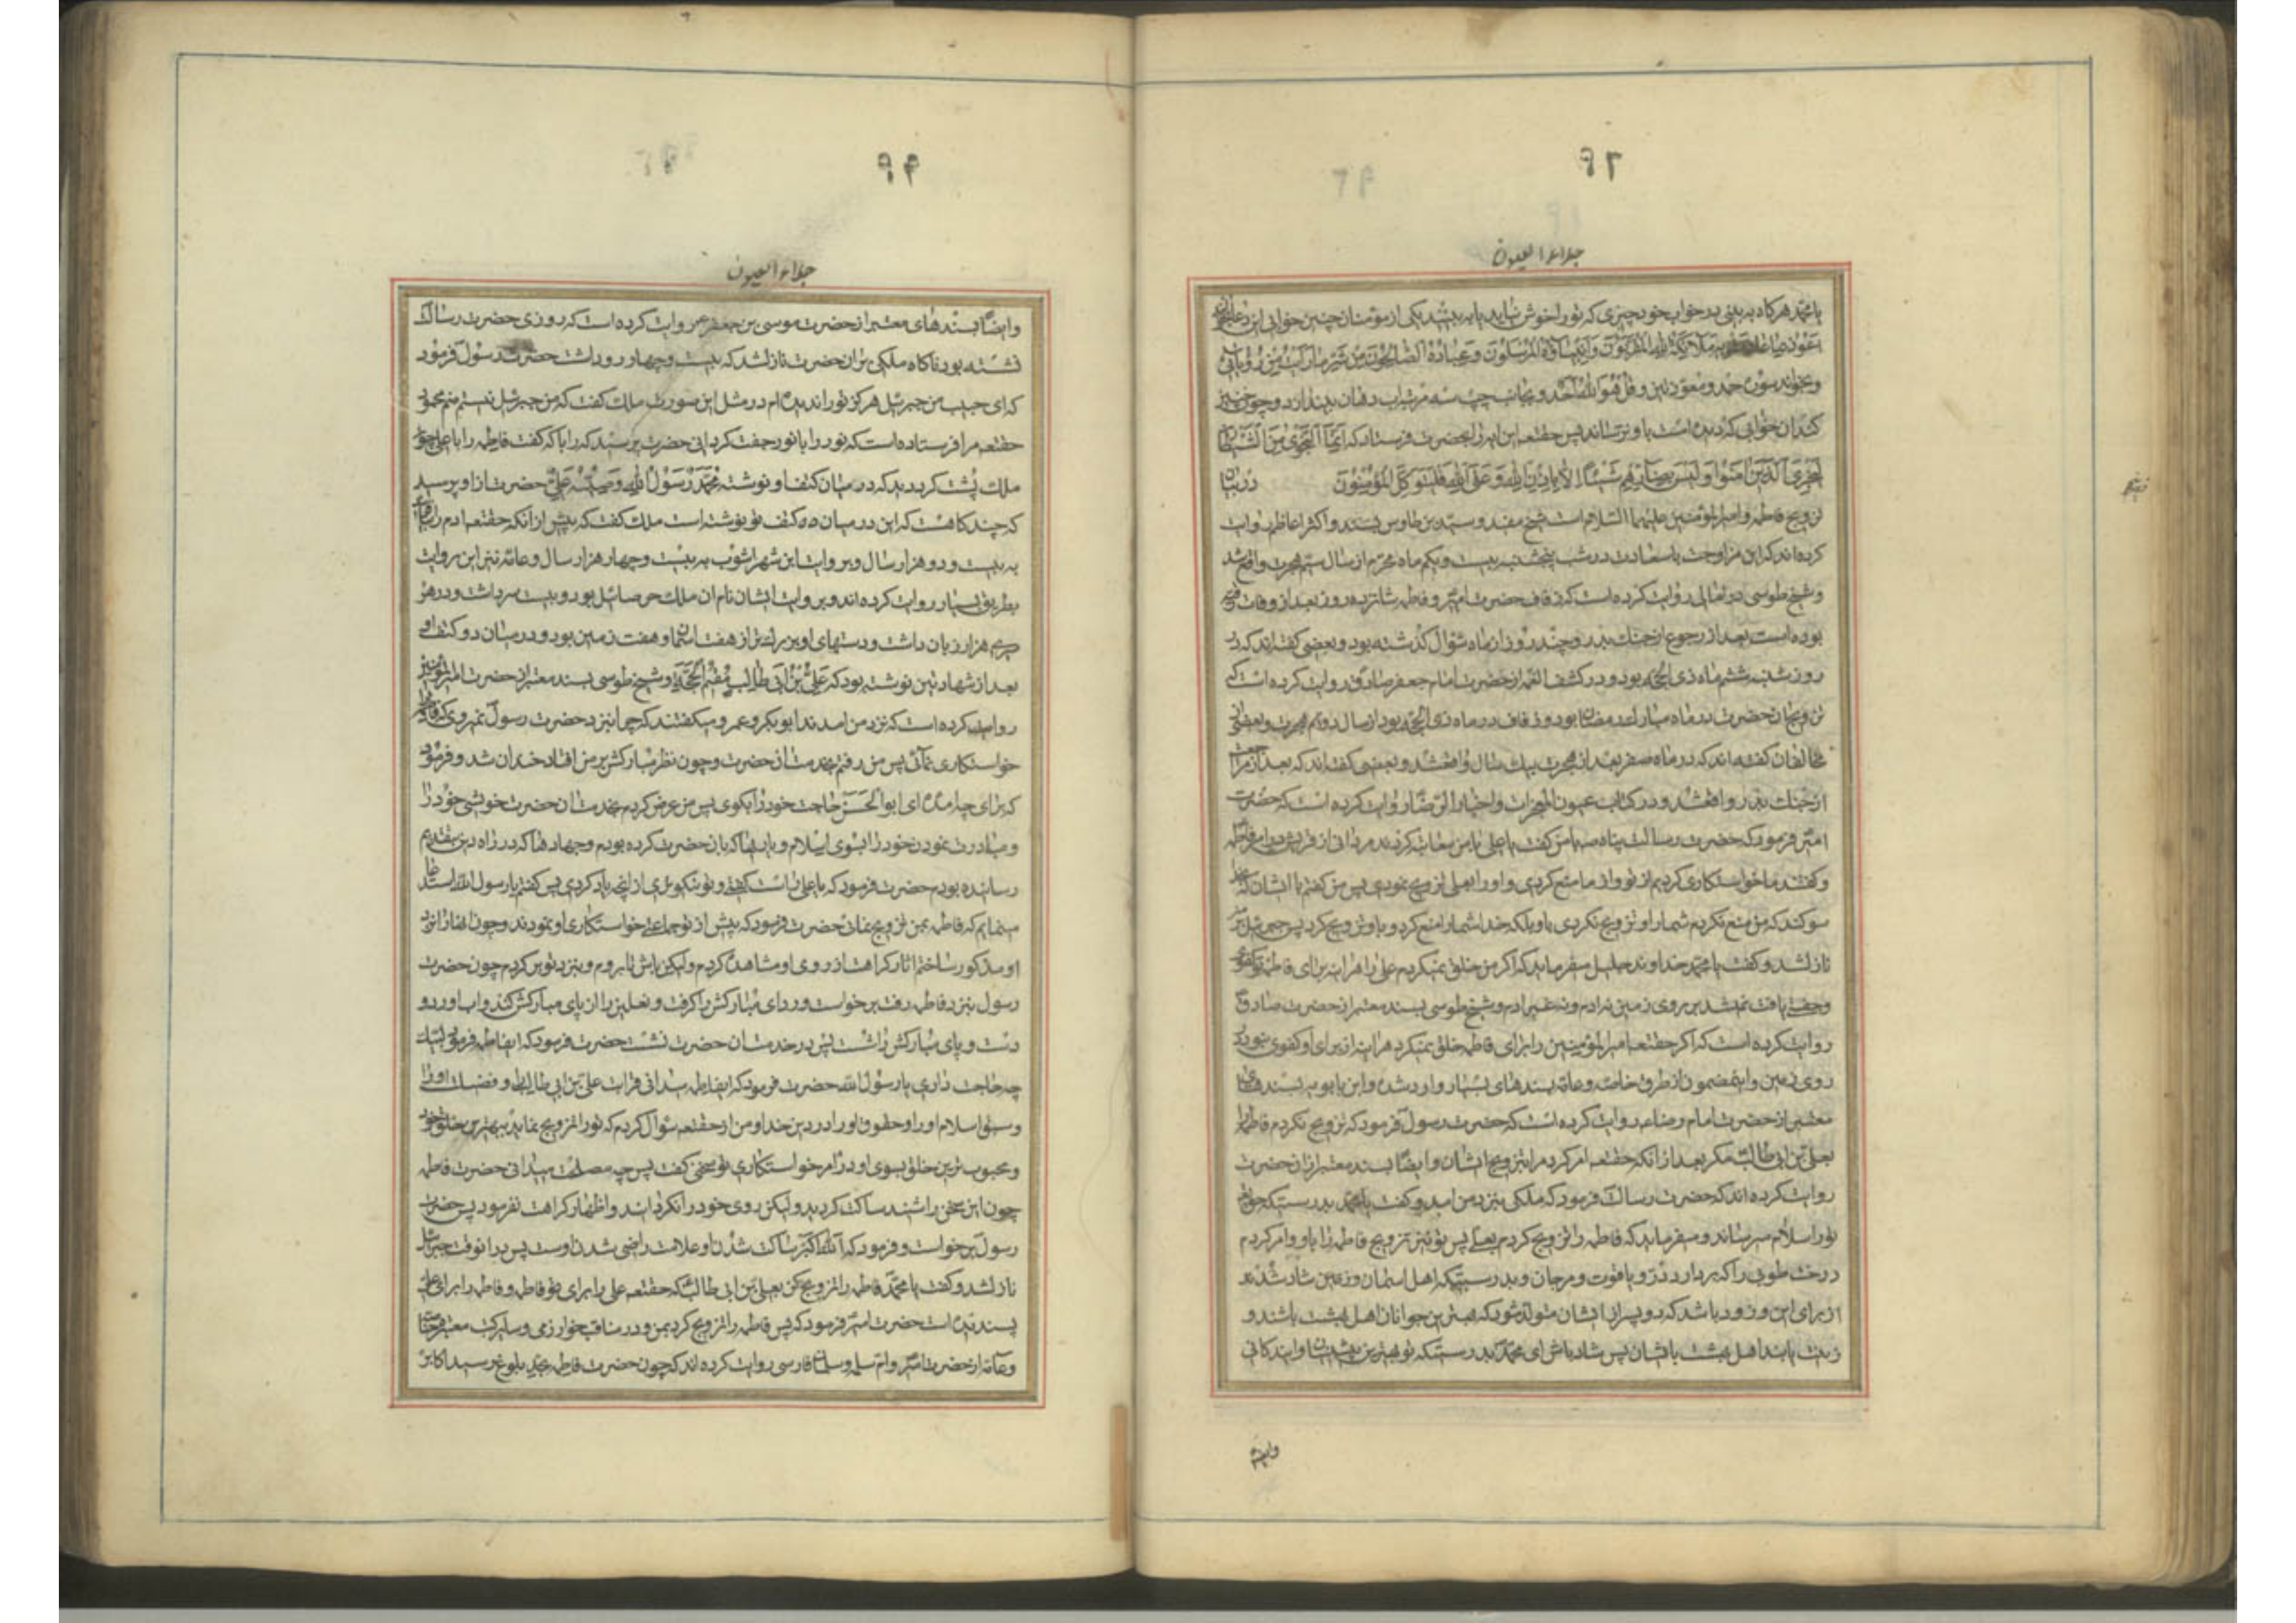 ۹۲
جلاء العیون
یا محمد هرکاه به بینی در خواب خود چیزی که تو را خوش نیاید یا به بیند یکی از مؤمنان چنین خوابی این دعا بخواند
اعوذ بما عاذت به ملائکة الله المقربون وانبیاؤه المرسلون وعباده الصالحون من شر ما رأیت من رؤیای
وبخواند سوره حمد و معوذتین و قل هو الله احد و بجانب چپ سه مرتبه اب دهان بیندازد و چون چنین
کند ان خوابی که دیده است باو نرساند پس حقتعه این ایه را بحضرت فرستاد که انما النجوی من الشیطان
لیحزن الذین امنوا ولیس بضارهم شیئا الا باذن الله وعلی الله فلیتوکل المؤمنون در بیان
تزویج فاطمه و امیرالمؤمنین علیهما السلام است شیخ مفید و سید بن طاوس بسند و اکثر اعاظم روایت
کرده اند که این مزاوجت باسعادت در شب پنجشنبه بیست و یکم ماه محرم از سال سیم هجرت واقع شد
و شیخ طوسی ره تعالی روایت کرده است که زفاف حضرت امیر و فاطمه شانزده روز بعد از وفات رقیه
بوده است بعد از رجوع از جنك بدر و چند روز از ماه شوال کذشته بود و بعضی کفته اند که در
روز شنبه ششم ماه ذی الحجه بود و در کشف الغمه از حضرت امام جعفر صادق روایت کرده است که
تزویج ان حضرت در ماه مبارك رمضان بود و زفاف در ماه ذی الحجه بود از سال دویم هجرت و بعضی از
مخالفان کفته اند که در ماه صفر بعد از هجرت بیك سال واقع شد و بعضی کفته اند که بعد از مراجعت
از جنك بدر واقع شد و در کتاب عیون المعجزات و اخبار الرضا روایت کرده است که حضرت
امیر فرمود که حضرت رسالت پناه ص با من کفت یا علی با من معاتبه کردند مردانی از قریش در امر فاطمه
و کفتند ما خواستکاری کردیم از تو و از ما منع کردی و او را بعلی تزویج نمودی پس من کفتم با ایشان که بخدا
سوکند که من منع نکردم شما را و تزویج نکردی باو بلکه خدا شما را منع کرد و باو تزویج کرد پس جبرئیل بر من
نازلشد و کفت یا محمد خداوند جلیل میفرماید که اکر من خلق نمیکردم علی را هراینه برای فاطمه تو کفوی
و جفتی یافت نمیشد بر روی زمین نه ادم و نه غیر ادم و شیخ طوسی بسند معتبر از حضرت صادق
روایت کرده است که اکر حقتعه امیرالمؤمنین را برای فاطمه خلق نمیکرد هراینه از برای او کفوی نبود بر
روی زمین و اینمضمون از طرق خاصه و عامه بسندهای بسیار وارد شده و ابن بابویه بسندهای
معتبر از حضرت امام رضا ع روایت کرده است که حضرت رسول فرمود که تزویج نکردم فاطمه را
بعلی بن ابی طالب مکر بعد از انکه حقتعه امر کرد مرا بتزویج ایشان و ایضا بسند معتبر از ان حضرت
روایت کرده اند که حضرت رسالت فرمود که ملکی بنزد من امد و کفت یا محمد بدرستیکه حق تعالی
تو را سلام میرساند و میفرماید که فاطمه را تزویج کردم بعلی پس تو نیز تزویج فاطمه را باو و امر کردم
درخت طوبی را که بردارد در و یاقوت و مرجان و بدرستیکه اهل اسمان و زمین شاد شدند
از برای این و زود باشد که دو پسر از ایشان متولد شود که بهترین جوانان اهل بهشت باشند و
زینت یابند اهل بهشت بایشان پس شاد باش ای محمد بدرستیکه تو بهترین پیشینیان و ایندکانی
وایضا
۹۳
جلاء العیون
وایضا بسندهای معتبر از حضرت موسی بن جعفر ع روایت کرده است که روزی حضرت رسالت
نشسته بود ناکاه ملکی بران حضرت نازلشد که بیست و چهار رو داشت حضرت رسول فرمود
که ای حبیب من جبرئیل هرکز تو را ندیده ام در مثل این صورت ملك کفت که من جبرئیل نیستم منم محمود
حقتعه مرا فرستاده است که نور را با نور جفت کردانی حضرت پرسید که را با که کفت فاطمه را با علی چون
ملك پشت کردید دید که در میان کتف او نوشته محمد رسول الله وصیه علی حضرت از او پرسید
که چند کاهست که این در میان دو کتف تو نوشته است ملك کفت که پیش از انکه حقتعه ادم را بیافریند
به بیست و دو هزار سال و بروایت ابن شهراشوب به بیست و چهار هزار سال و عامه نیز این روایت
بطریق بسیار روایت کرده اند و بروایت ایشان نام ان ملك صرصائیل بود و بیست سر داشت و در هر
سری هزار زبان داشت و دستهای او بزرك تر از هفت اسمان و هفت زمین بود و در میان دو کتف او
بعد از شهادتین نوشته بود که علی بن ابی طالب مقیم الحجة و شیخ طوسی بسند معتبر از حضرت امیرالمؤمنین
روایت کرده است که نزد من امدند ابوبکر و عمر و میکفتند که چرا بنزد حضرت رسول نمیروی که فاطمه را
خواستکاری نمائی پس من رفتم بخدمت ان حضرت و چون نظر مبارکش بر من افتاد خندان شد و فرمود
که برای چه امده ای ابوالحسن حاجت خود را بکوی پس من عرض کردم بخدمت ان حضرت خویشی خود را
و مبادرت نمودن خود را بسوی اسلام و یاریها که بان حضرت کرده بودم و جهادها که در راه دین بتقدیم
رسانده بودم حضرت فرمود که یا علی راست کفتی و تو نیکوتری از انچه یاد کردی پس کفتم یا رسول الله استدعا
مینمایم که فاطمه بمن تزویج نمائی حضرت فرمود که پیش از تو جماعتی خواستکاری او نمودند و چون انها را نزد
او مذکور ساختم اثار کراهت از روی او مشاهده کردم ولیکن باش تا بروم و بنزد تو برکردم چون حضرت
رسول بنزد فاطمه رفت برخواست و ردای مبارکش را کرفت و نعلین را از پای مبارکش کند و اب اورد و
دست و پای مبارکش را شست پس در خدمت ان حضرت نشست حضرت فرمود که ایفاطمه فرمود لبیك
چه حاجت داری یا رسول الله حضرت فرمود که ایفاطمه میدانی قرابت علی بن ابی طالب و فضیلت او را
و سبق اسلام او را و حقوق او را در دین خدا و من از حقتعه سؤال کردم که تو را تزویج نماید ببهترین خلق خود
و محبوب ترین خلق بسوی او در امر خواستکاری تو سخن کفت پس چه مصلحت میدانی حضرت فاطمه
چون این سخن را شنید ساکت کردید ولیکن روی خود را نکردانید و اظهار کراهت نفرمود پس حضرت
رسول برخواست و فرمود که الله اکبر ساکت شدن او علامت راضی شدن اوست پس در انوقت جبرئیل
نازلشد و کفت یا محمد فاطمه را تزویج کن بعلی بن ابی طالب که حقتعه علی را برای فاطمه و فاطمه را برای علی
پسندیده است حضرت امیر فرمود که پس فاطمه را تزویج کرد بمن و در مناقب خوارزمی و سایر کتب معتبره خاصه
و عامه از حضرت امیر و ام سلمه و سلمان فارسی روایت کرده اند که چون حضرت فاطمه بحد بلوغ رسید اکابر